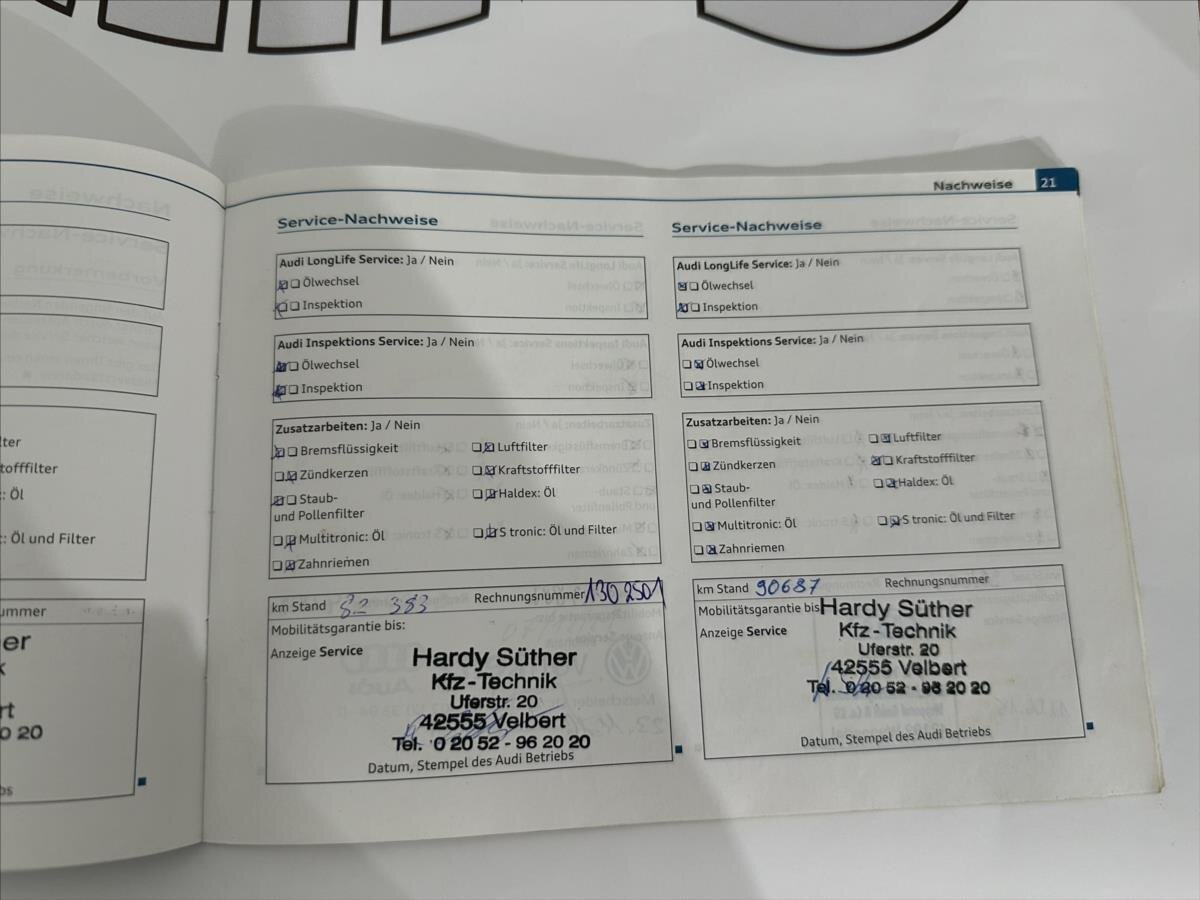 Nachweise 21
Service-Nachweise
Audi LongLife Service: Ja / Nein
Ölwechsel
Inspektion
Audi Inspektions Service: Ja / Nein
Ölwechsel
Inspektion
Zusatzarbeiten: Ja / Nein
Bremsflüssigkeit
Luftfilter
Zündkerzen
Kraftstofffilter
Staub-
und Pollenfilter
Haldex: Öl
Multitronic: Öl
S tronic: Öl und Filter
Zahnriemen
km Stand 82 383
Rechnungsnummer 130 2501
Mobilitätsgarantie bis:
Anzeige Service
Hardy Süther
Kfz-Technik
Uferstr. 20
42555 Velbert
Tel. 0 20 52 - 96 20 20
Datum, Stempel des Audi Betriebs
Service-Nachweise
Audi LongLife Service: Ja / Nein
Ölwechsel
Inspektion
Audi Inspektions Service: Ja / Nein
Ölwechsel
Inspektion
Zusatzarbeiten: Ja / Nein
Bremsflüssigkeit
Luftfilter
Zündkerzen
Kraftstofffilter
Staub-
und Pollenfilter
Haldex: Öl
Multitronic: Öl
S tronic: Öl und Filter
Zahnriemen
km Stand 90687
Rechnungsnummer
Mobilitätsgarantie bis
Anzeige Service
Hardy Süther
Kfz-Technik
Uferstr. 20
42555 Velbert
Tel. 0 20 52 - 96 20 20
Datum, Stempel des Audi Betriebs